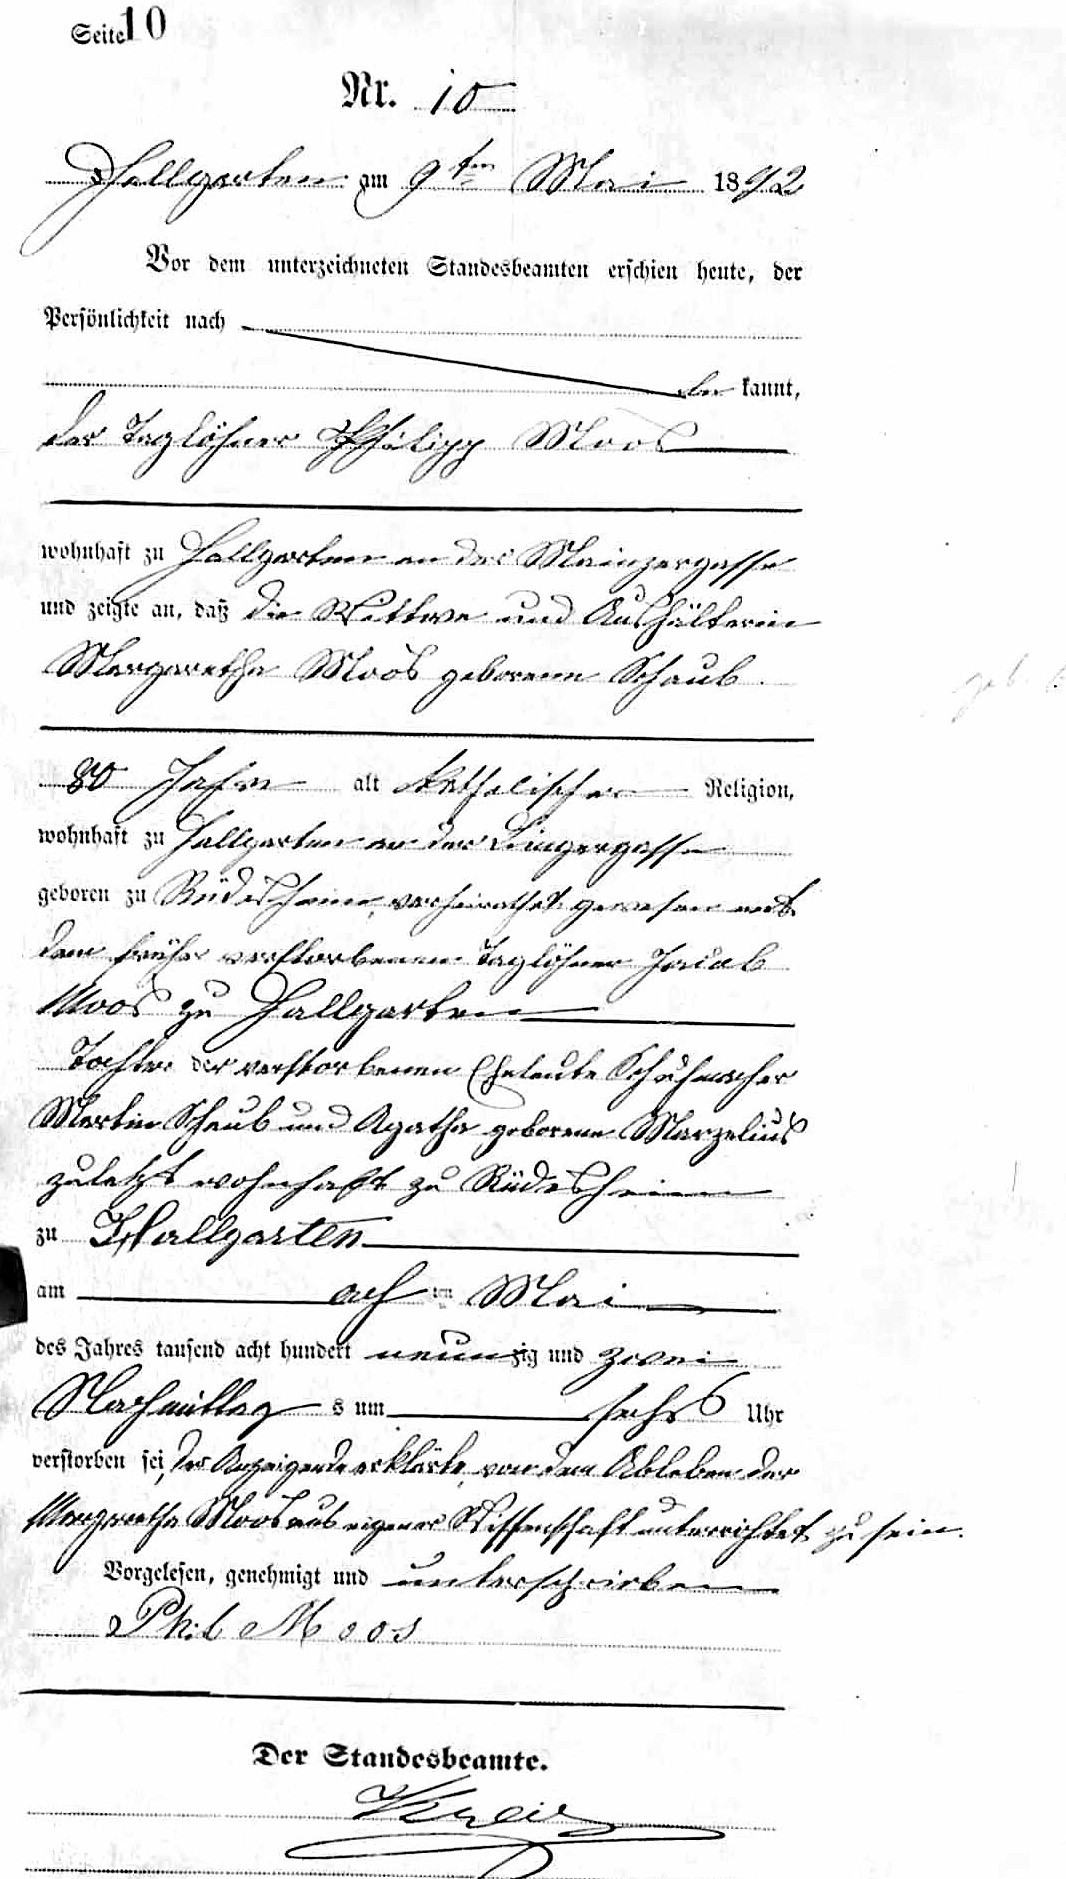 Seite 10
Nr. 10
Hallgarten am 9ten Mai 1892
Vor dem unterzeichneten Standesbeamten erschien heute, der
Persönlichkeit nach
be kannt,
der Taglöhner Philipp Moos
wohnhaft zu Hallgarten an der Mainzergasse
und zeigte an, daß die Wittwe und Aushälterin
Margaretha Moos geborene Schaub
80 Jahre alt katholischer Religion,
wohnhaft zu Hallgarten an der
geboren zu Rüdesheim, verheirathet gewesen mit
dem früher verstorbenen Taglöhner Jacob
Moos zu Hallgarten
Tochter der verstorbenen Eheleute Schuhmacher
Martin Schaub und Agatha geborene Marzelius
zuletzt wohnhaft zu Rüdesheim
zu Hallgarten
am acht ten Mai
des Jahres tausend acht hundert neun zig und zwei
Nachmittag s um sechs Uhr
verstorben sei, der Anzeigende erklärte, von dem Ableben der
Margaretha Moos aus eigener Wissenschaft unterrichtet zu sein.
Vorgelesen, genehmigt und unterschrieben
Phil Moos
Der Standesbeamte.
geb.